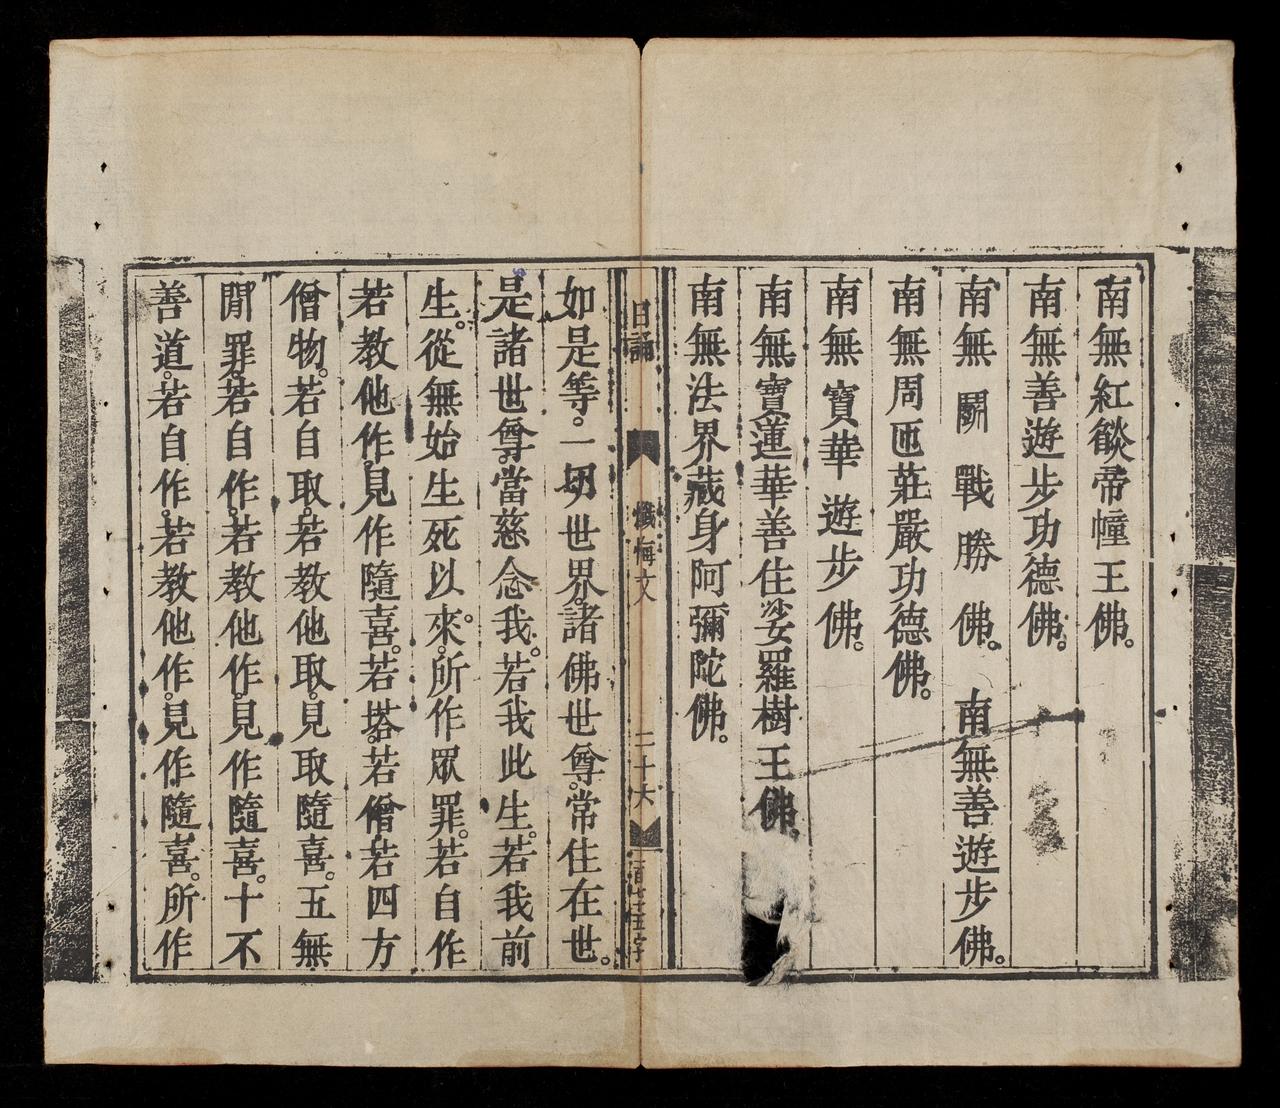 南無紅燄帝幢王佛。
南無善遊步功德佛。
南無鬬戰勝佛。　南無善遊步佛。
南無周匝莊嚴功德佛。
南無寶華遊步佛。
南無寶蓮華善住娑羅樹王佛。
南無法界藏身阿彌陀佛。
日誦　懺悔文　二十六
如是等。一切世界。諸佛世尊。常住在世。
是諸世尊。當慈念我。若我此生。若我前
生。從無始生死以來。所作眾罪。若自作
若教他作。見作隨喜。若塔。若僧若四方
僧物。若自取。若教他取。見取隨喜。五無
間罪。若自作。若教他作。見作隨喜。十不
善道。若自作。若教他作。見作隨喜。所作